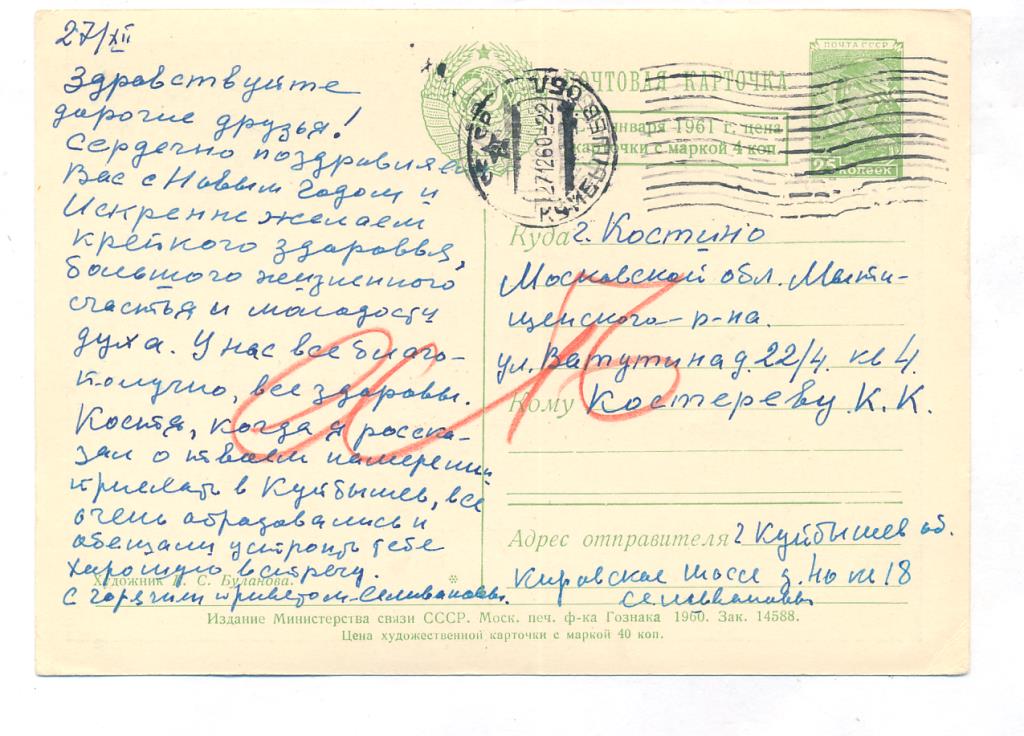 27/XII
Здравствуйте
дорогие друзья!
Сердечно поздравляем
Вас с Новым годом и
Искренне желаем
крепкого здоровья,
большого жизненного
счастья и молодости
духа. У нас все благо-
получно, все здоровы.
Костя, когда я расска-
зал о твоем намерении
приехать в Куйбышев, все
очень обрадовались и
обещали устроить тебе
хорошую встречу.
С горячим приветом Селивановы.
Художник С. Буланова.
ПОЧТОВАЯ КАРТОЧКА
января 1961 г. цена
карточки с маркой 4 коп.
ПОЧТА СССР
25 копеек
КУЙБЫШЕВ ОБЛ.
271260-22
Куда г. Костино
Московской обл. Мыти-
щенского р-на.
ул. Ватутина д. 22/4. кв 4.
Кому Костереву К. К.
Адрес отправителя г Куйбышев об.
Кировское шоссе 18
Селивановы
Издание Министерства связи СССР. Моск. печ. ф-ка Гознака 1960. Зак. 14588.
Цена художественной карточки с маркой 40 коп.